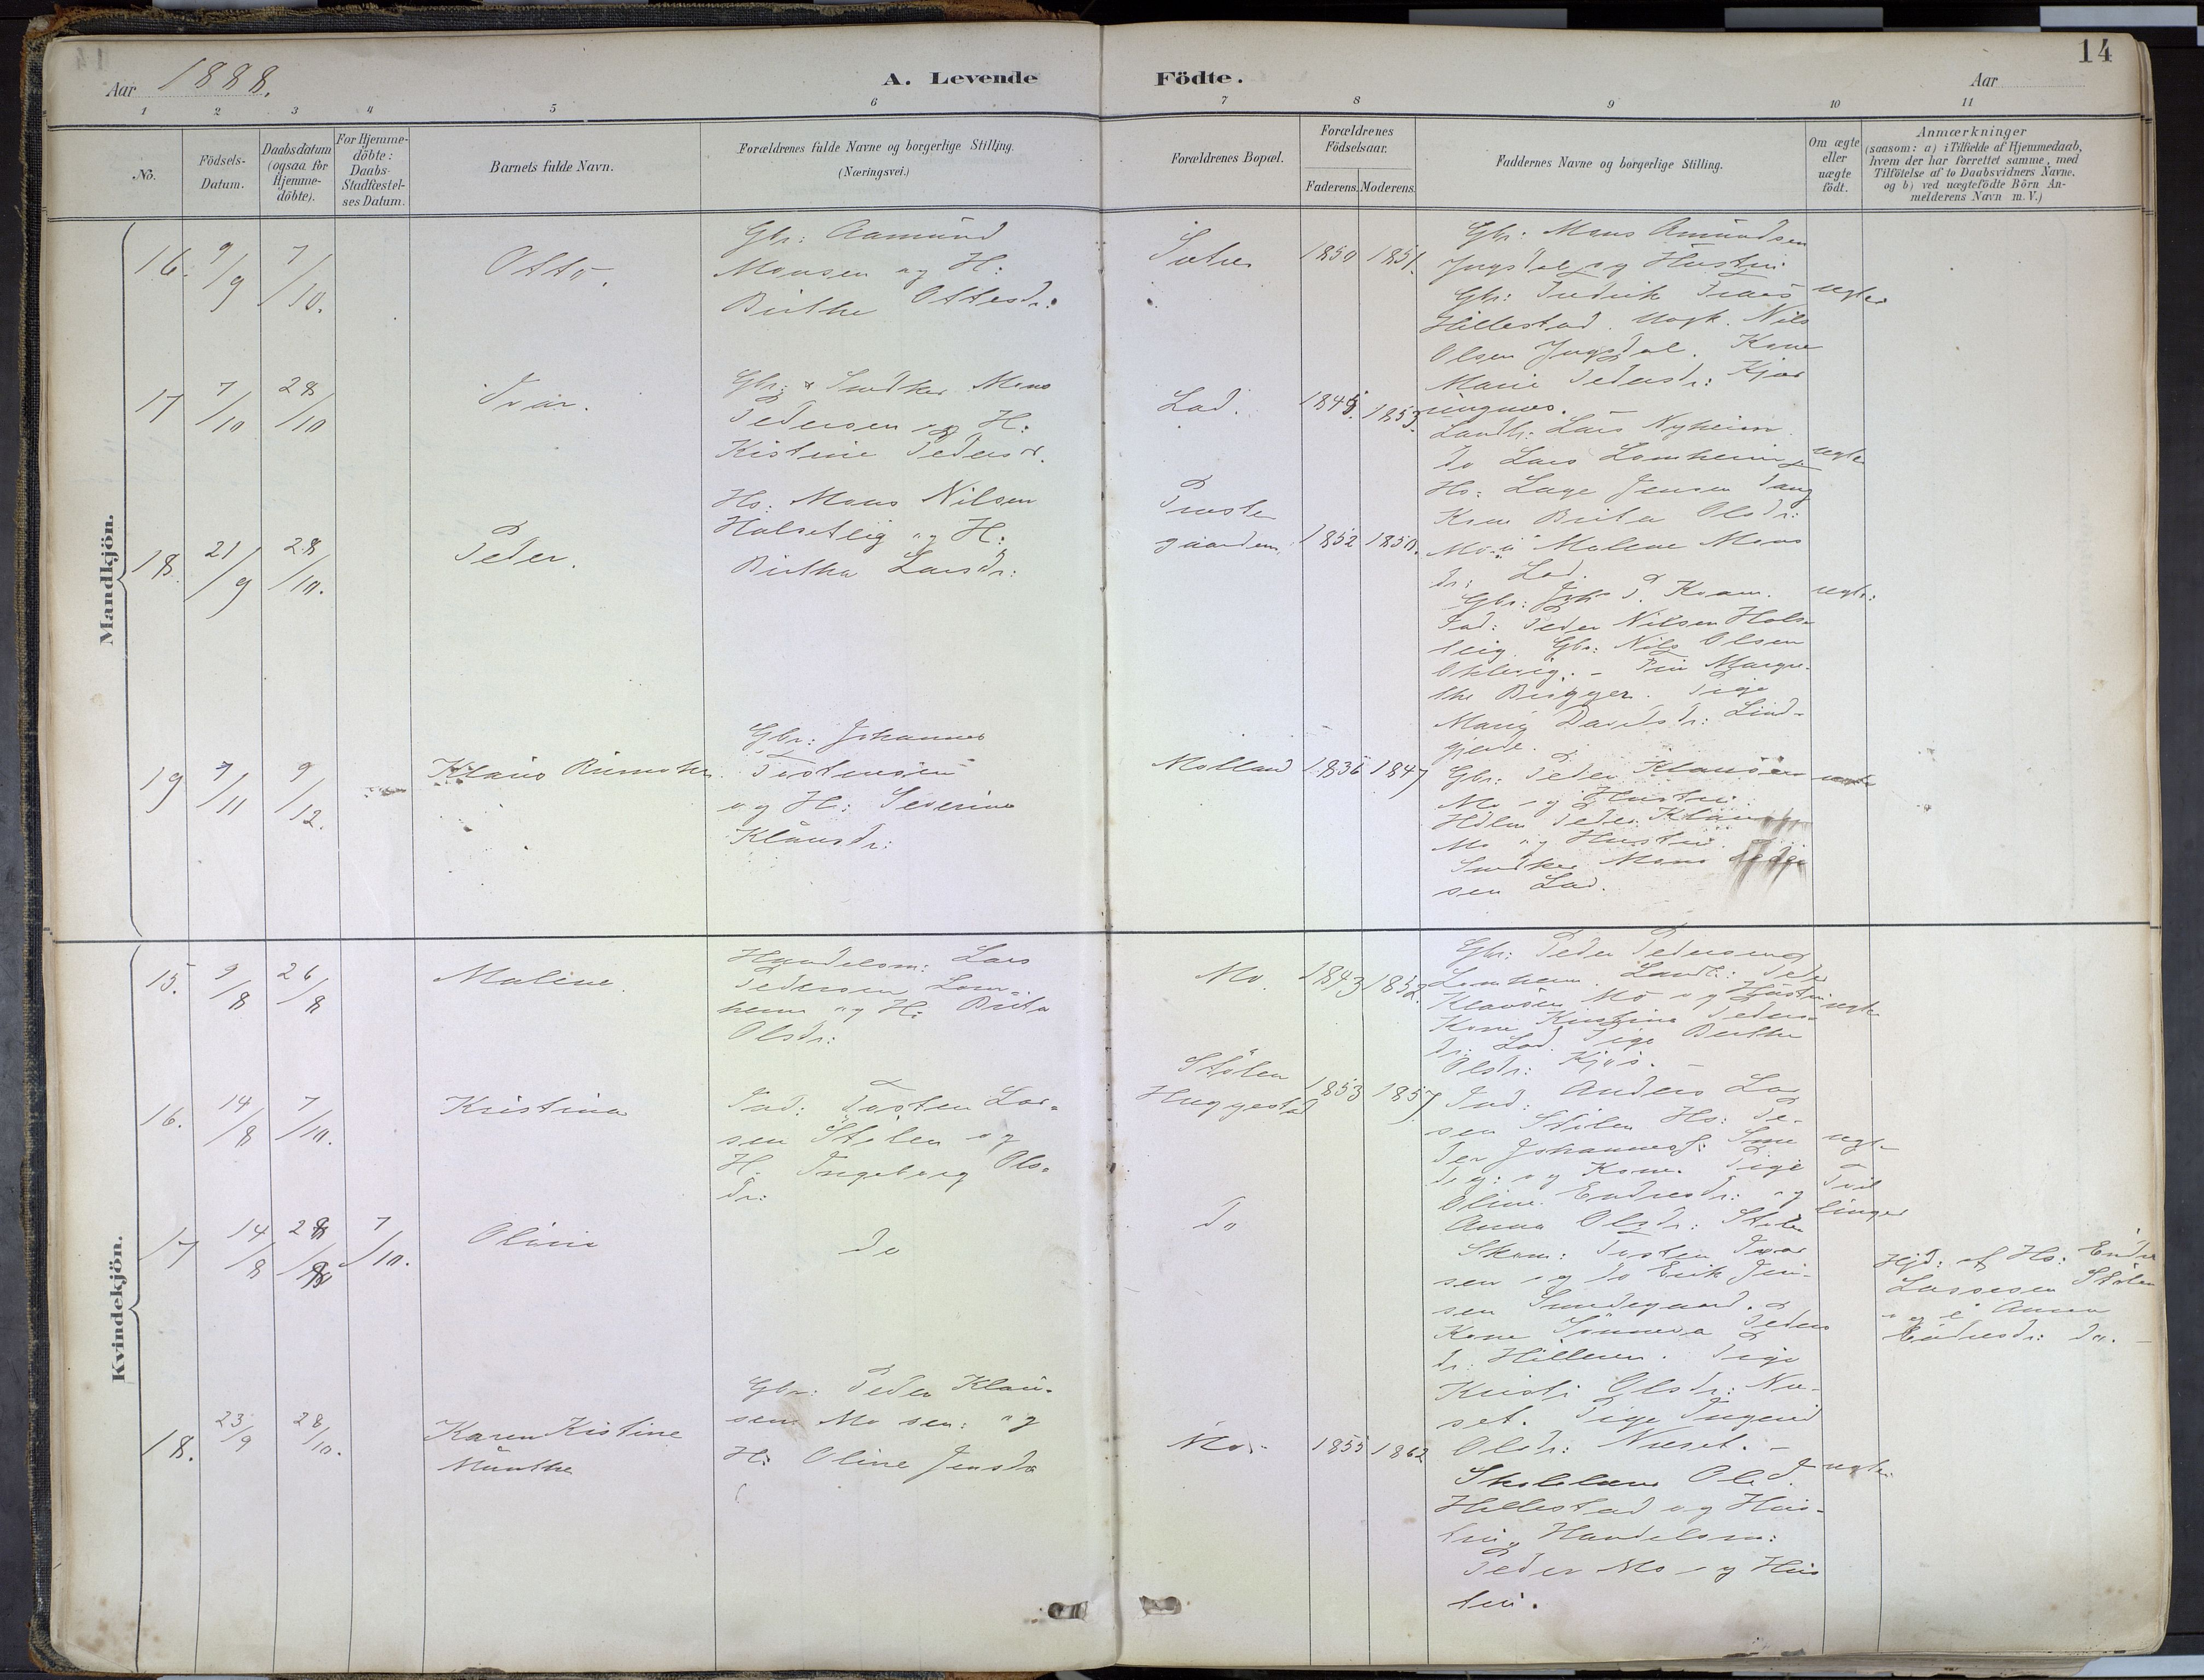 14
Aar 1888.
A. Levende Födte.
Aar
1 2 3 4 5 6 7 8 9 10 11
No.
Födsels-Datum.
Daabsdatum (ogsaa for Hjemme-döbte).
For Hjemme-döbte: Daabs-Stadfæstel-ses Datum.
Barnets fulde Navn.
Forældrenes fulde Navne og borgerlige Stilling.
(Næringsvei.)
Forældrenes Bopæl.
Forældrenes Födselsaar.
Faderens. Moderens.
Faddernes Navne og borgerlige Stilling.
Om ægte eller uægte födt.
Anmærkninger
(saasom: a) i Tilfælde af Hjemmedaab,
hvem der har forrettet samme, med
Tilföielse af to Daabsvidners Navne.
og b) ved uægtefödte Börn An-
melderens Navn m. V.)
Mandkjön.
16. 9/9 7/10. Otto.
Gbr: Aamund
Monsen og H:
Birthe Ottesdr:
1850 1851.
Gbr: Mons Amundsen
og Hustru
Gbr:
Hillestad. Nils
Olsen Kone
Marie Pedersdr:
ægte
17 7/10 28/10 Ivar.
Gbr: & Snedker Mons
Pedersen og H:
Kistine Pedersd.
Lad. 1845. 1853.
Landh: Lars Nyheim
do Lars Lomheim
Hs: Lage Jensen
Kone Brita Olsdr:
Mo. Malene Mons
dr: Lad.
ægte
18. 21/9 28/10. Peder.
Hs: Mons Nilsen
Halsetlig og H:
Birtha Larsdr:
Præste
gaarden. 1852 1850.
Gbr: Joh. P. Kvam.
Ind: Peder Nilsen Hals
leig. Gbr: Nils Olsen
Margre-
the Brügger. Pige
Marie Davidsdr: Lind-
gjerde.
ægte:
19 7/11 9/12. Klaus Rumohr.
Gbr: Johannes
Tostensen
og H: Severine
Klausdr:
Molland 1836 1847
Gbr: Peder Klausen
Mo og Hustru.
Hdlm Peder Klausen
Mo og Hustru.
Snedker Mons
sen Lad.
Kvindekjön.
15. 9/8 26/8 Maline.
Handelsm: Lars
Pedersen Lom-
heim og H: Brita
Olsdr:
Mo. 1843 1852.
Gbr: Peder Pedersen
Lomheim. Landh: Peder
Klausen Mo og Hustru
Kone Kirstine Peders-
dr: Lad. Pige Berthe
Olsdr: Kjös. -
ægte
16. 14/8 7/10. Kristina
Ind: Tosten Lar-
sen Stölen og
H: Ingeborg Ols-
dr:
Stölen
Huggestad 1853 1857.
Ind: Anders Lar
sen Stölen Hs: Pe-
der Johannes:
og Kone. Pige
Oline Endresdr: og
Anna Olsdr: Stölen
ægte
Tvil
linger
17 14/8 28/8 7/10. Olina
do
do
Skom: Tosten Ivar
sen og do Erik Jen-
sen Sundegaard.
Kone Synneva Peders
dr: Hilleren. Pige
Kristi Olsdr: Næ-
set. Pige Ingerid
Olsdr: Næset. -
Hjd: af Hs: Endre
Lassesen Stölen
og Anna
Endresdr: do. -
18. 23/9 28/10. Karen Kistine
Münthe
Gbr: Peder Klau-
sen Mo sen: og
H: Oline Jensdr
Mo. 1855 1862
Skolelærer Ole J.
Hillestad og Hus-
tru, Handelsm:
Peder Mo og Hus
tru.
ægte